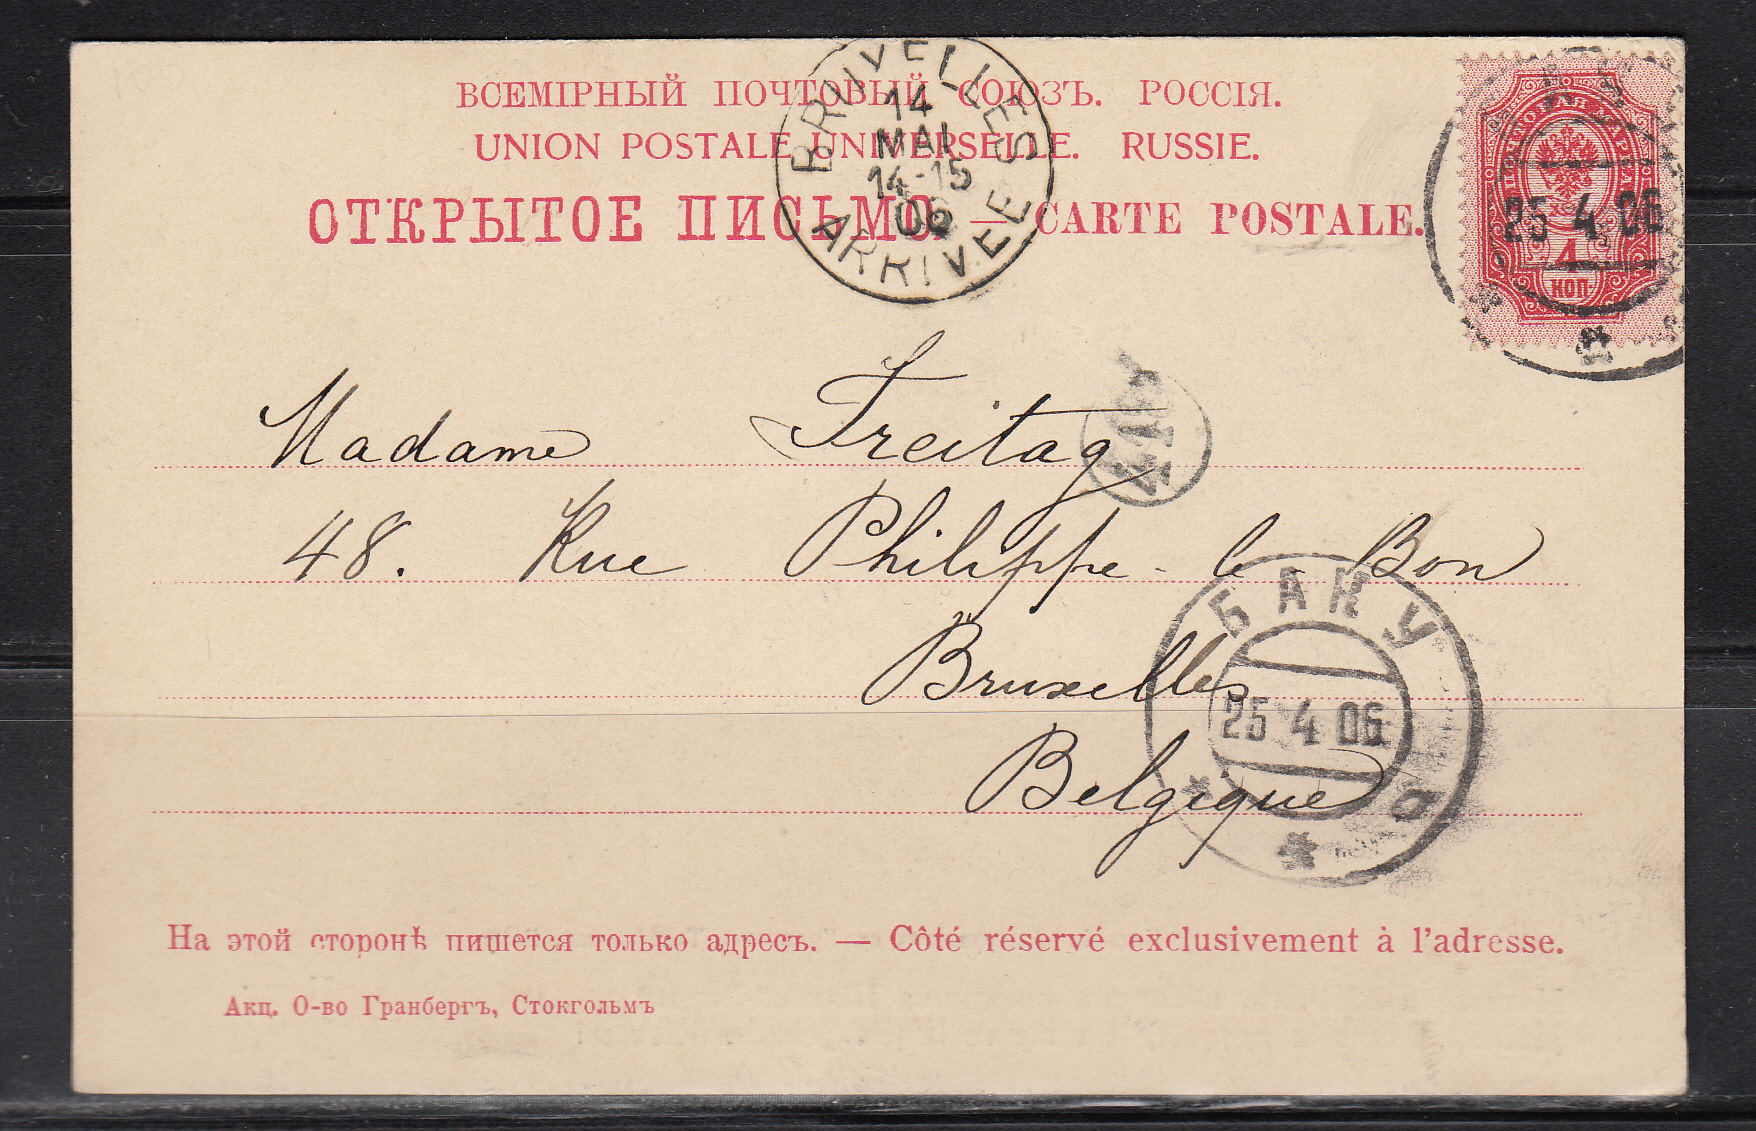 ВСЕМІРНЫЙ ПОЧТОВЫЙ СОЮЗЪ. РОССІЯ.
UNION POSTALE UNIVERSELLE. RUSSIE.
ОТКРЫТОЕ ПИСЬМО — CARTE POSTALE.
BRUXELLES
14
MAI
14-15
06
ARRIVEE
25 4 06
4
КОП.
Madame Freitag
48. Rue Philippe-le-Bon
Bruxelles
Belgique
БАКУ
25 4 06
а
На этой сторонѣ пишется только адресъ. — Côté réservé exclusivement à l'adresse.
Акц. О-во Гранбергъ, Стокгольмъ